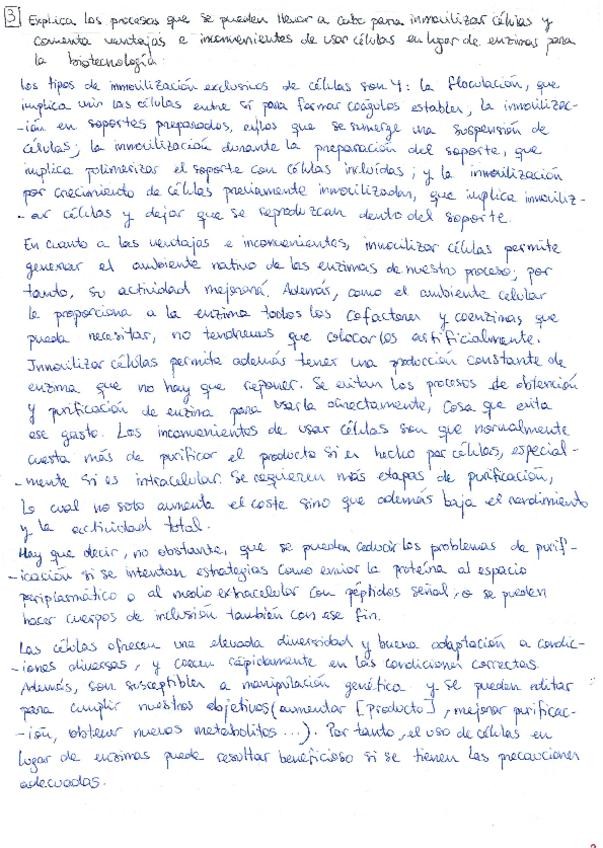 3 Explica los procesos que se pueden llevar a cabo para inmovilizar células y
comenta ventajas e inconvenientes de usar células en lugar de enzimas para
la biotecnología.
Los tipos de inmovilización exclusivos de células son 4: la floculación, que
implica unir las células entre sí para formar coágulos estables; la inmovilizac-
-ión en soportes preparados, en los que se sumerge una suspensión de
células; la inmovilización durante la preparación del soporte, que
implica polimerizar el soporte con células incluidas; y la inmovilización
por crecimiento de células previamente inmovilizadas, que implica inmoviliz-
-ar células y dejar que se reproduzcan dentro del soporte.
En cuanto a las ventajas e inconvenientes, inmovilizar células permite
generar el ambiente nativo de las enzimas de nuestro proceso; por
tanto, su actividad mejorará. Además, como el ambiente celular
le proporciona a la enzima todos los cofactores y coenzimas que
pueda necesitar, no tendremos que colocarlos artificialmente.
Inmovilizar células permite además tener una producción constante de
enzima que no hay que reponer. Se evitan los procesos de obtención
y purificación de enzima para usarla directamente, cosa que evita
ese gasto. Los inconvenientes de usar células son que normalmente
cuesta más de purificar el producto si es hecho por células, especial-
-mente si es intracelular. Se requieren más etapas de purificación,
lo cual no solo aumenta el coste sino que además baja el rendimiento
y la actividad total.
Hay que decir, no obstante, que se pueden reducir los problemas de purif-
-icación si se intentan estrategias como enviar la proteína al espacio
periplasmático o al medio extracelular con péptidos señal, o se pueden
hacer cuerpos de inclusión también con ese fin.
Las células ofrecen una elevada diversidad y buena adaptación a condic-
-iones diversas, y crecen rápidamente en las condiciones correctas.
Además, son susceptibles a manipulación genética y se pueden editar
para cumplir nuestros objetivos (aumentar [producto], mejorar purificac-
-ión, obtener nuevos metabolitos...). Por tanto, el uso de células en
lugar de enzimas puede resultar beneficioso si se tienen las precauciones
adecuadas.